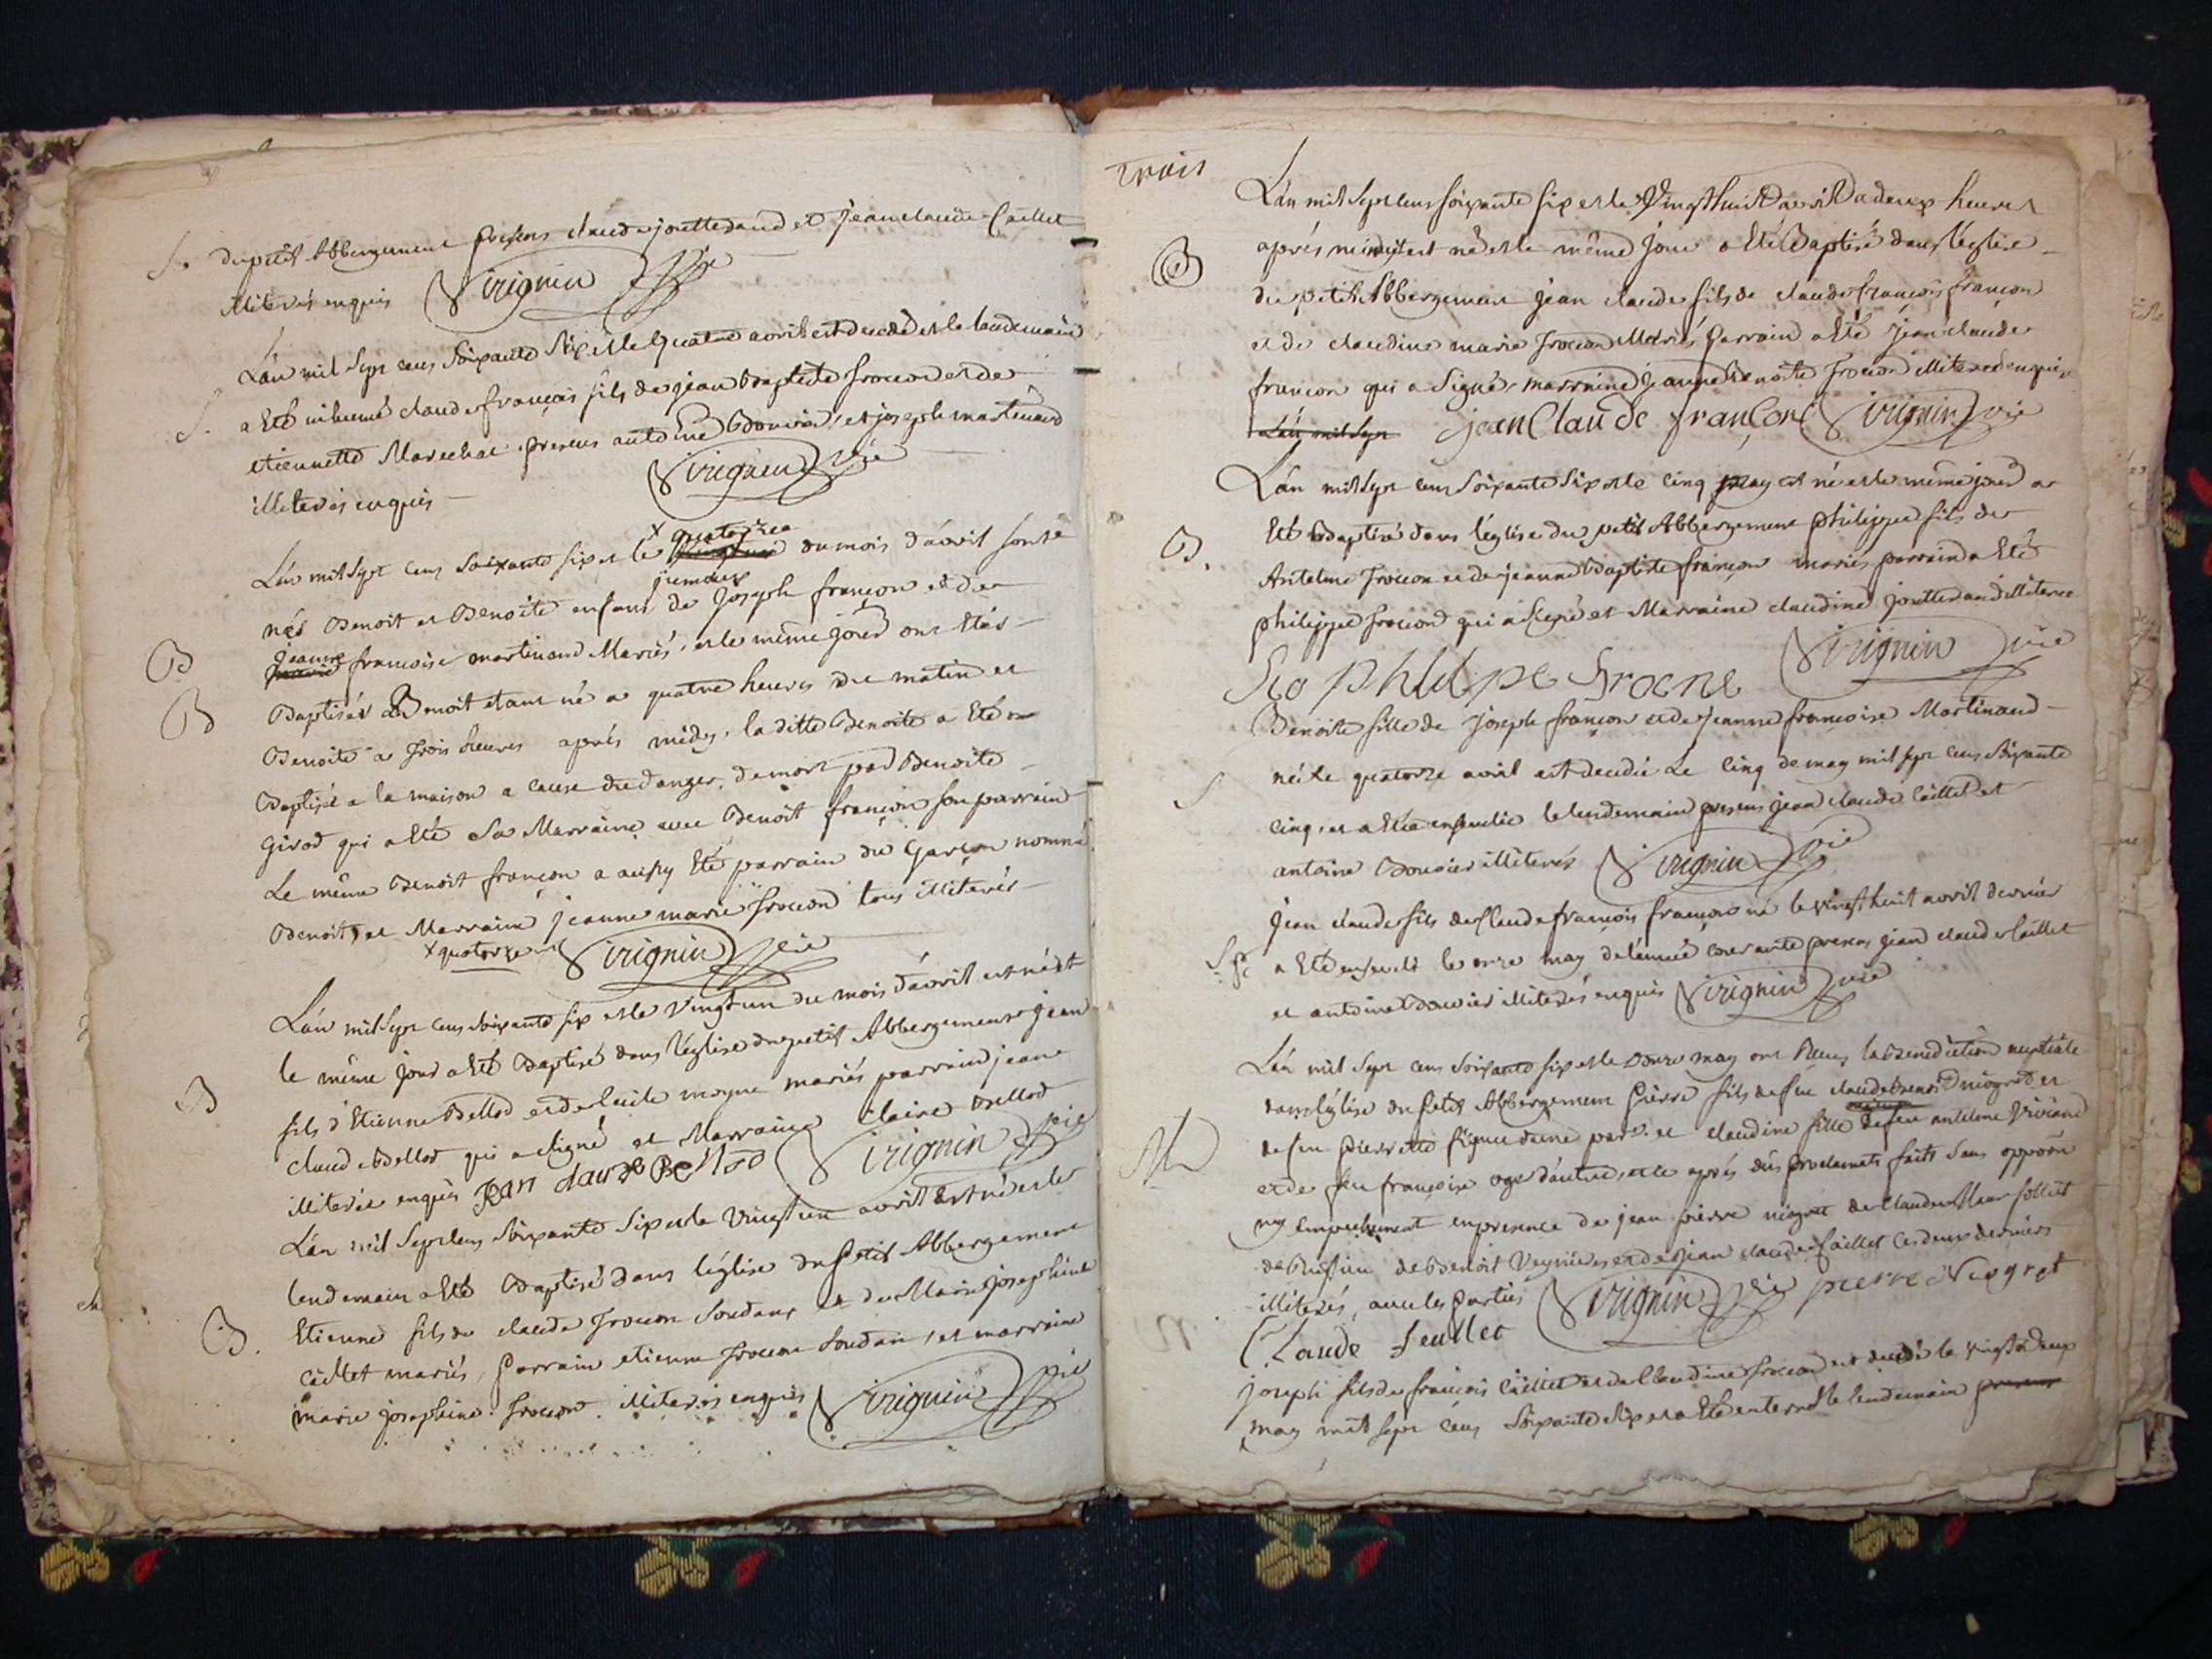 S. du petit Abbergement presens claude jouttedand et jean claude Caillet
illiterés enquis Virignin vic
L'an mil sept cens soixante six et le quatre avril est decedé et le lendemain
S. a Eté inhumé claude françois fils de jean baptiste froccon et de
etiennette Marechal presens antoine Bouvier et joseph martinand
illiterés enquis Virignin vic
L'an mil sept cens soixante six et le x quatorze du mois d'avril sont
jumeaux
B nés Benoit et Benoite enfans de joseph françon et de
jeanne françoise martinand Mariés, et le même jour ont Etés
B Baptisés Benoit etant né a quatre heures du matin et
Benoite a trois heures après midy, la ditte Benoite a Eté
Baptisée a la maison a cause du danger de mort par Benoite
Girod qui a Eté sa Marraine avec Benoit françon son parrain
Le même Benoit françon a aussy Eté parrain du Garçon nommé
Benoit, et Marraine jeanne marie froccon tous illiterés
x quatorze Virignin vic
L'an mil sept cens soixante six et le vingt un du mois d'avril est né et
le même jour a Eté Baptisé dans l'église du petit Abbergement jean
B fils d'Etienne Bellod et de Cecile moyne mariés parrain jean
claude Bellod qui a signé et Marraine claire Bellod
illiterée enquis Jean claude Bellod Virignin vic
L'an mil sept cens soixante six et le vingt un avril Est né et le
lendemain a Eté Baptisé dans l'église du petit Abbergement
B. Etienne fils de claude froccon soudans et de Marie josephine
caillet mariés, Parrain etienne froccon soudan, et marraine
marie josephine froccon illiterés enquis Virignin vic
trois
L'an mil sept cens soixante six et le Vingt huit avril a deux heures
B après minuit est né et le même jour a Eté Baptisé dans l'église
du petit Abbergement jean claude fils de claude françois françon
et de claudine marie froccon Mariés, Parrain a Eté jean claude
françon qui a signé, marraine jeanne Benoite froccon illiterée enquise
L'an mil sept jean Claude françon Virignin vic
L'an mil sept cens soixante six et le cinq may est né et le même jour a
Eté Baptisé dans l'église du petit Abbergement philippe fils de
B. Antelme froccon et de jeanne baptiste françon mariés parrain a Eté
philippe froccon qui a signé et Marraine claudine jouttedand illiteree
philipe frocne Virignin vic
Benoite fille de joseph françon et de jeanne françoise Martinand
S née le quatorze avril est decedée Le cinq de may mil sept cens soixante
cinq, et a Etée ensevelie le lendemain presens jean claude Caillet et
antoine Bouvier illiterés Virignin vic
jean claude fils de claude françois françon né le vingt huit avril dernier
a Eté enseveli le onze may de l'année courante presens jean claude Caillet
et antoine Bouvier illiterés enquis Virignin vic
L'an mil sept cens soixante six et le douze may ont Reçus la Benediction nuptiale
dans l'église du petit Abbergement Pierre fils de feu claude benoit niogret et
M de feu pierrette figuet d'une part. et claudine fille de feu antelme Viviand
et de feu françoise oger d'autre, et le après dûs proclamats faits sans oppoôn
ny Empechement en presence de jean pierre niogret de Claude feullet
de Ruffieu de Benoit et de jean claude Caillet ces deux derniers
illiterés, avec les parties Virignin vic pierre Niogret
Claude feullet
joseph fils de françois Caillet et de Claudine froccon est decedé le vingt deux
may mil sept cens soixante six et a Eté enterré le lendemain presens